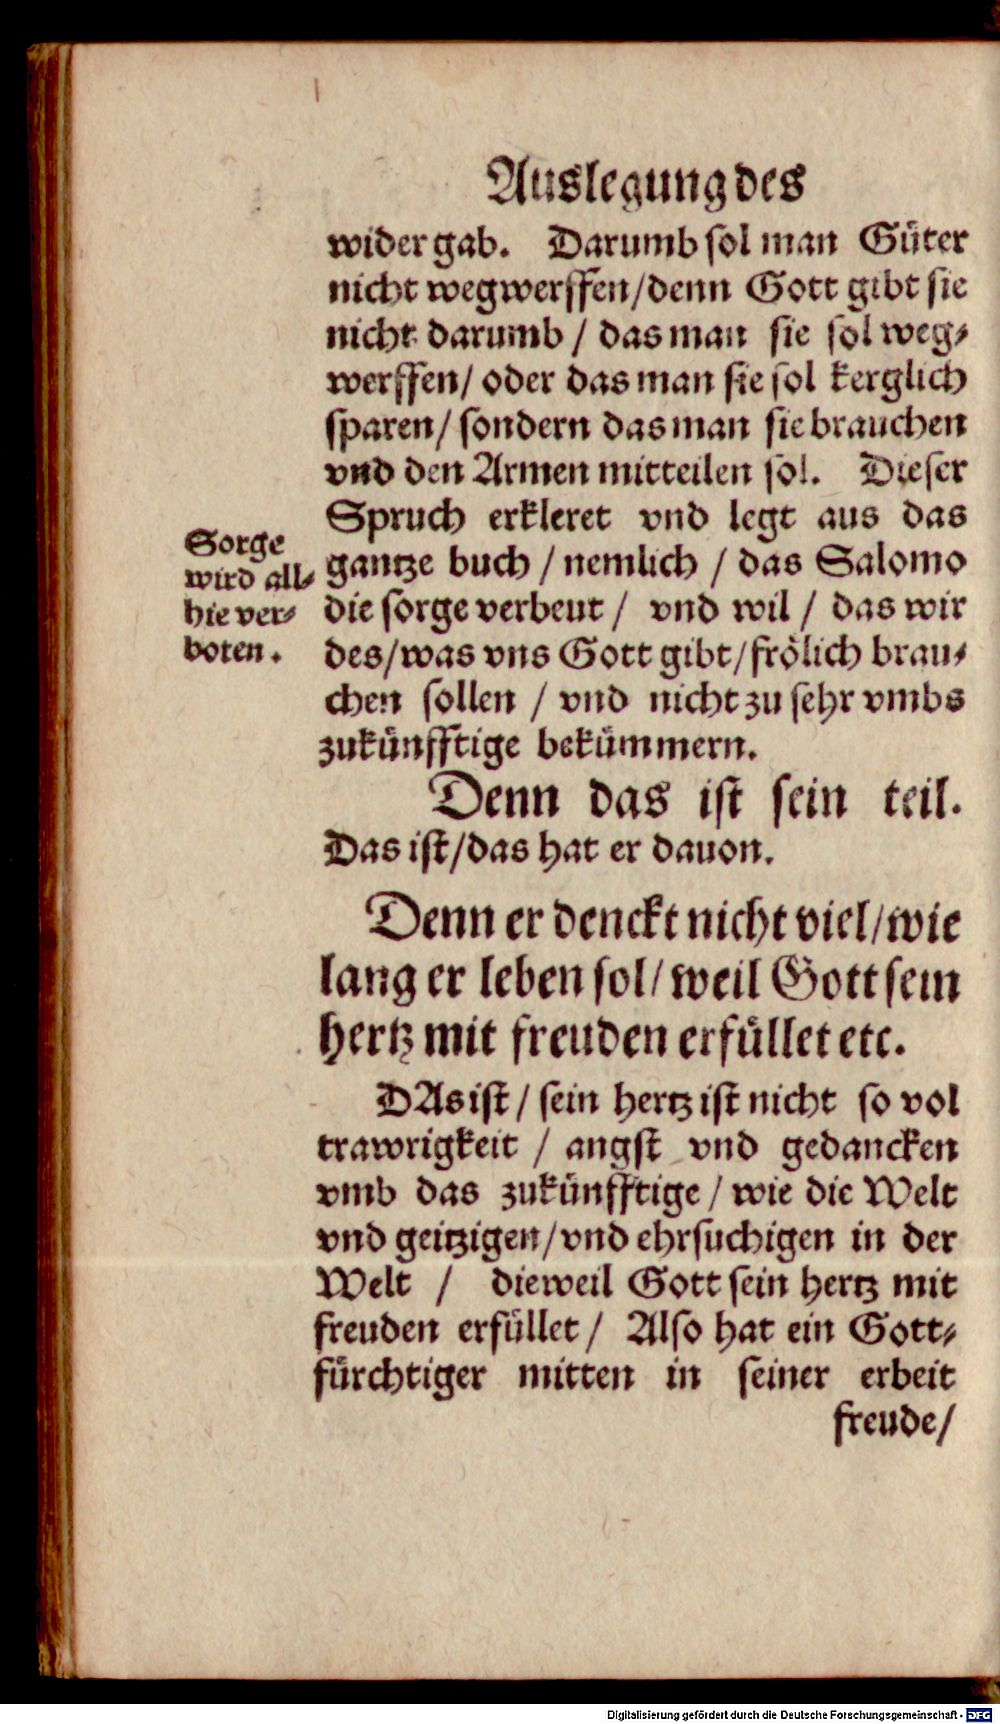 Auslegung des
wider gab. Darumb sol man Güter
nicht wegwerffen/denn Gott gibt sie
nicht darumb / das man sie sol weg⸗
werffen/ oder das man sie sol kerglich
sparen/ sondern das man sie brauchen
vnd den Armen mitteilen sol. Dieser
Spruch erkleret vnd legt aus das
gantze buch / nemlich / das Salomo
die sorge verbeut / vnd wil / das wir
des/was vns Gott gibt/frölich brau⸗
chen sollen / vnd nicht zu sehr vmbs
zukünfftige bekümmern.
Sorge
wird all⸗
hie ver⸗
boten.
Denn das ist sein teil.
Das ist/das hat er dauon.
Denn er denckt nicht viel/wie
lang er leben sol/weil Gott sein
hertz mit freuden erfüllet etc.
DAs ist / sein hertz ist nicht so vol
trawrigkeit / angst vnd gedancken
vmb das zukünfftige / wie die Welt
vnd geitzigen/vnd ehrsuchigen in der
Welt / dieweil Gott sein hertz mit
freuden erfüllet / Also hat ein Gott⸗
fürchtiger mitten in seiner erbeit
freude/
Digitalisierung gefördert durch die Deutsche Forschungsgemeinschaft - DFG